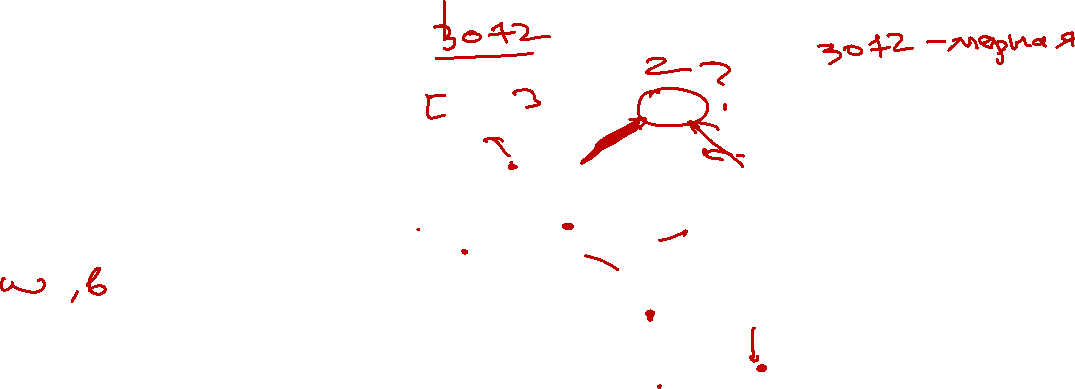 3072
3072-мерная
[ ]
2 ?
?
w, b